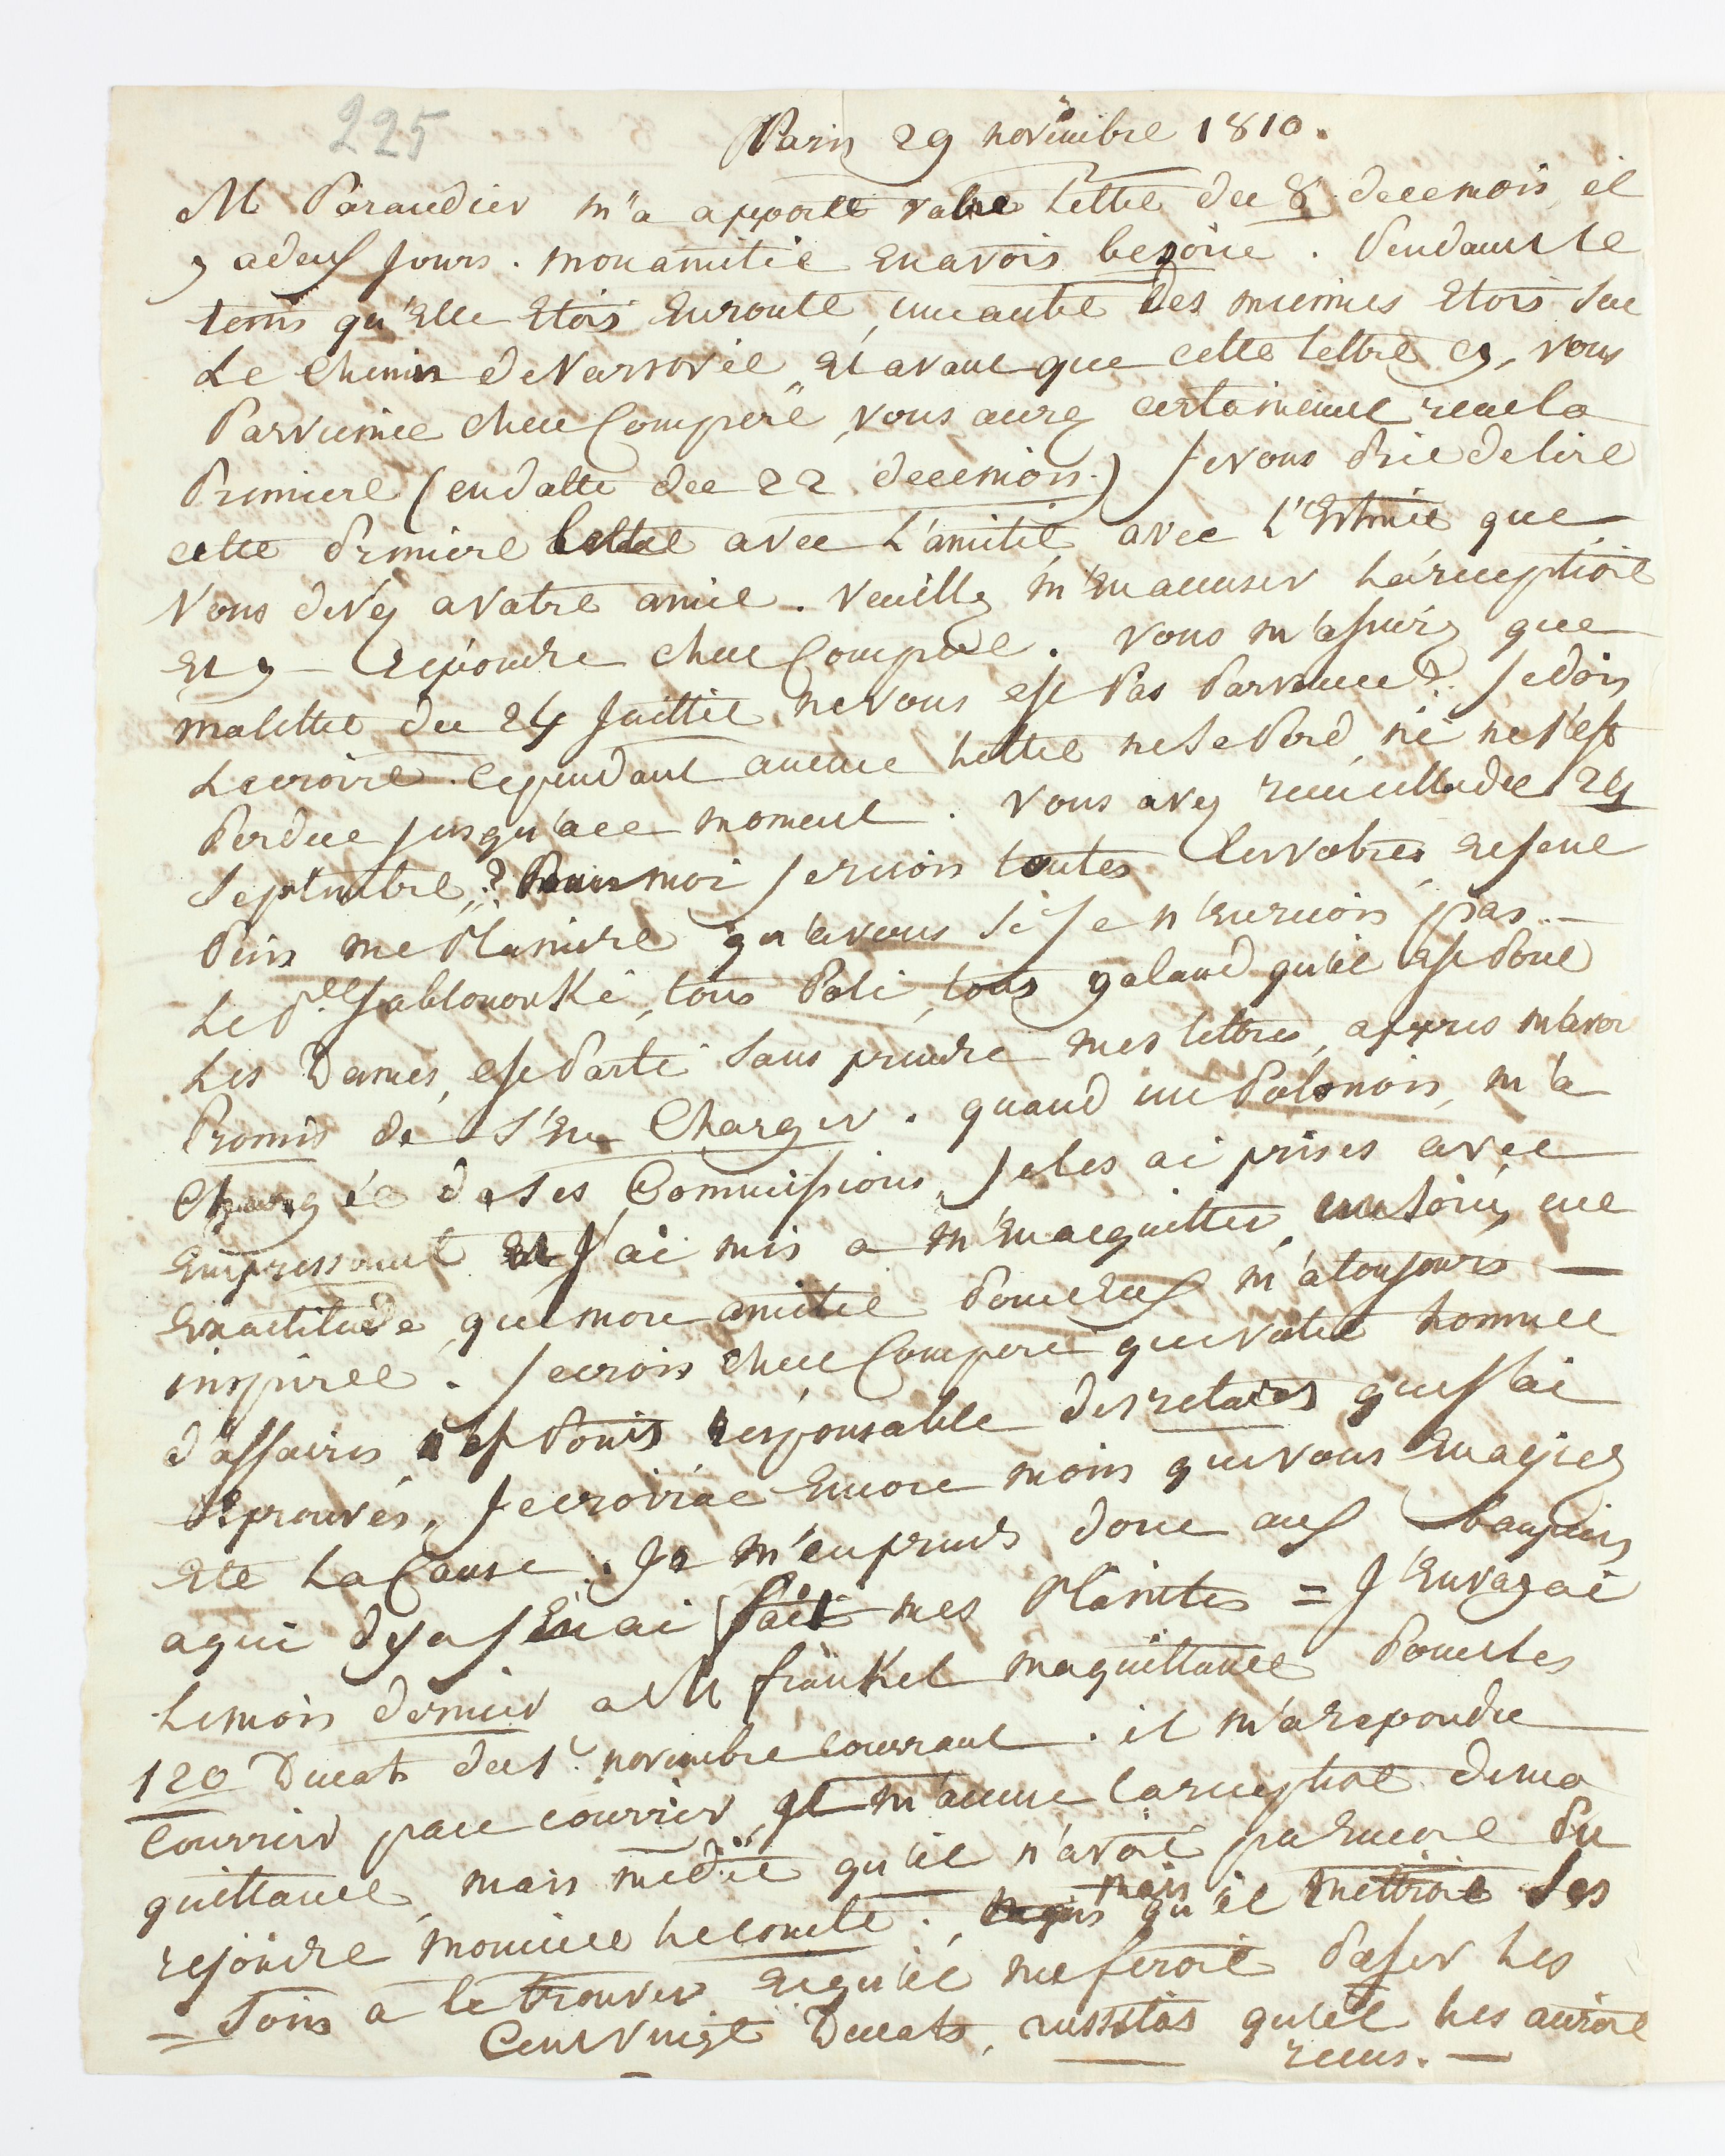 225
Paris 29 novembre 1810.
M Parandier m'a apporté votre Lettre du 8 de ce mois, il
y a deux jours. mon amitié en avois besoin. Pendant le
tems qu'elle Etois En route, une autre des miennes Etois sur
Le Chemin de Varsovie Et avant que cette lettre cy, vous
Parvienne cher Compere, vous aurez certainement recu la
Premiere (en datte du 22 de ce mois.) Je vous Prie de lire
cette Premiere Lettre avec L'amitié, avec L'Estime que
Vous devez a votre amie. Veuillez m'En accuser La réception
Et y repondre cher Compere. Vous m'assurez que
ma lettre du 24 Juillet ne vous est Pas Parvenue? Je dois
Le croire. cependant aucune Lettre ne se Perd, ni ne s'est
Perdue jusqu'a ce moment. Vous avez recu celle du 24
Septembre? Pour moi je recois toutes les votres, Et je ne
Puis me Plaindre qu'a vous si je n'En recois pas.—
Le P.ce Jablonouski, tout Poli, tout galand qu'il Est Pour
Les Dames, est Parti sans prendre mes lettres, apprès m'avoir
Promis de s'En Charger. quand un Polonois, m'a
Chargée de ses Commissions, Je les ai prises avec
Empressement Et J'ai mis a m'En acquitter, un soin, une
Exactitude, que mon amitié Pour Eux m'a toujours —
inspirée. Je crois cher Compere que votre homme
d'affaires n'est Point responsable des retards que J'ai
Eprouvés, Je croirai Encore moins que vous En ayiez
Eté La Cause. Je m'en prends donc aux banquiers
a qui deja J'En ai fait mes Plaintes = J'Envoyai
Le mois dernier a M frankel ma quittance Pour les
120 Ducats du 1.r novembre courrant. il m'a repondu
Courrier par courrier, Il m'accuse la reception de ma
quittance, mais me dit qu'il n'avoit pas Encore Pu
rejoindre monsieur Le Comte. mais qu'il mettroit ses
= soins a le trouver Et qu'il me feroit Passer Les
Cent Vingt Ducats, aussitos qu'il Les auroit
recus. —